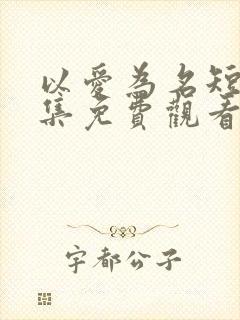 以愛為名短
集免費觀看
宇都公子